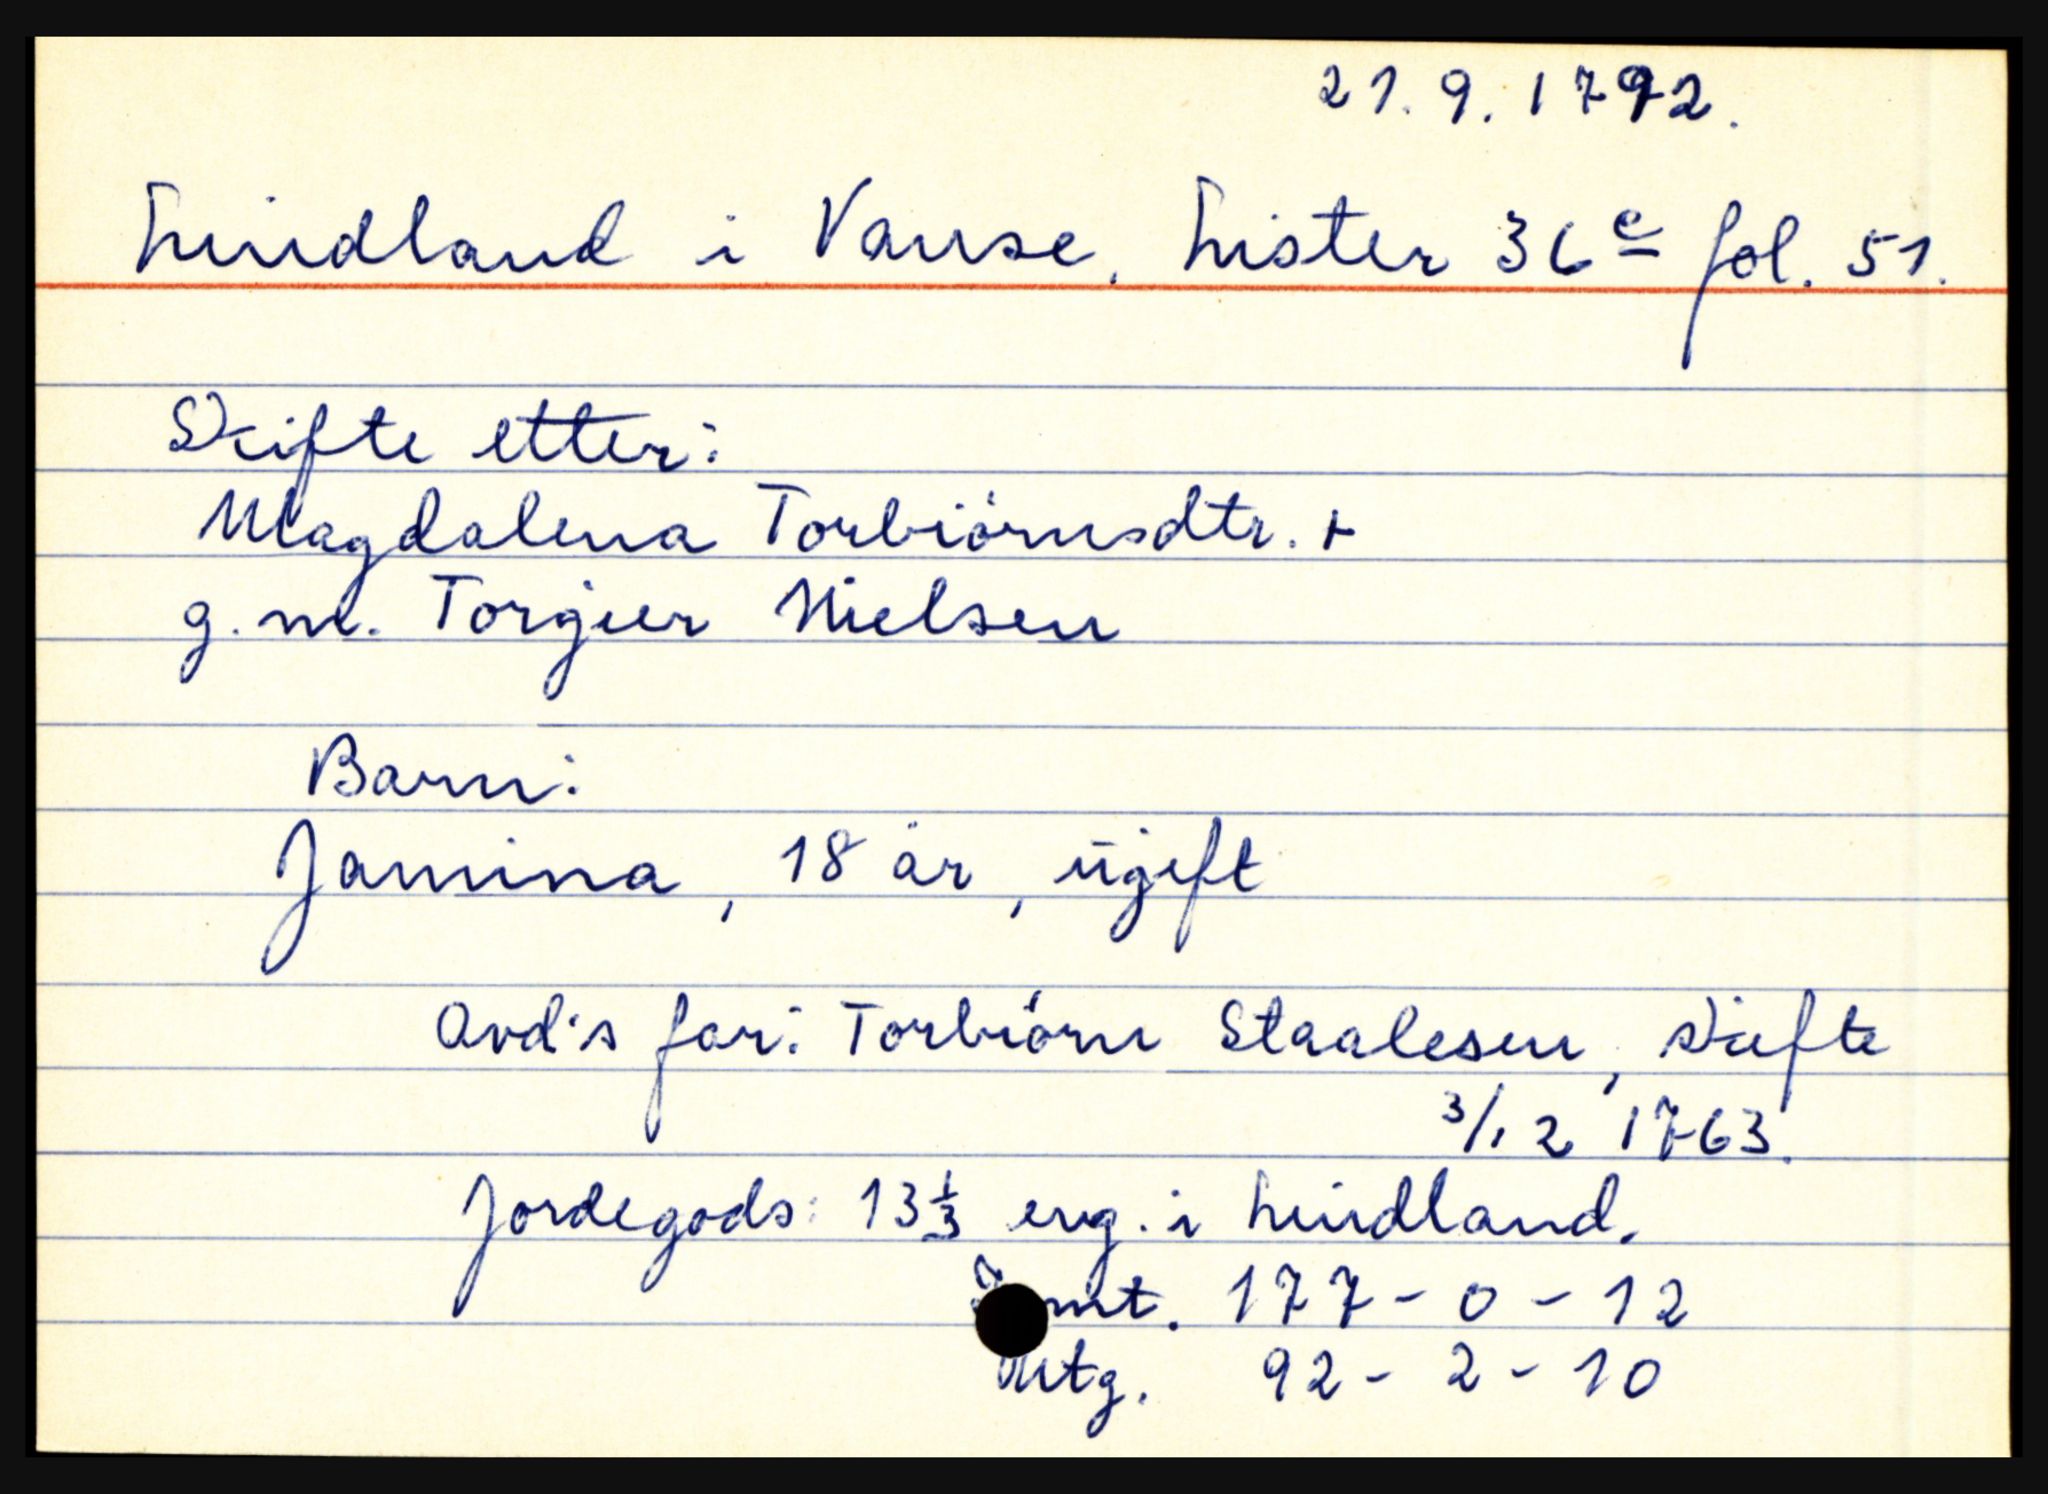 21.9.1792.
Lindland i Vanse. Lister 36 c fol. 51.
Skifte etter:
Magdalena Torbiörnsdtr. +
g.m. Torgier Nielsen
Barn:
Jamina, 18 år, ugift
Avd's far: Torbiörn Staalesen, skifte
3/12 1763.
Jordegods: 13 1/3 eng. i Lindland.
mt. 177 - 0 - 12
Ntg. 92 - 2 - 10